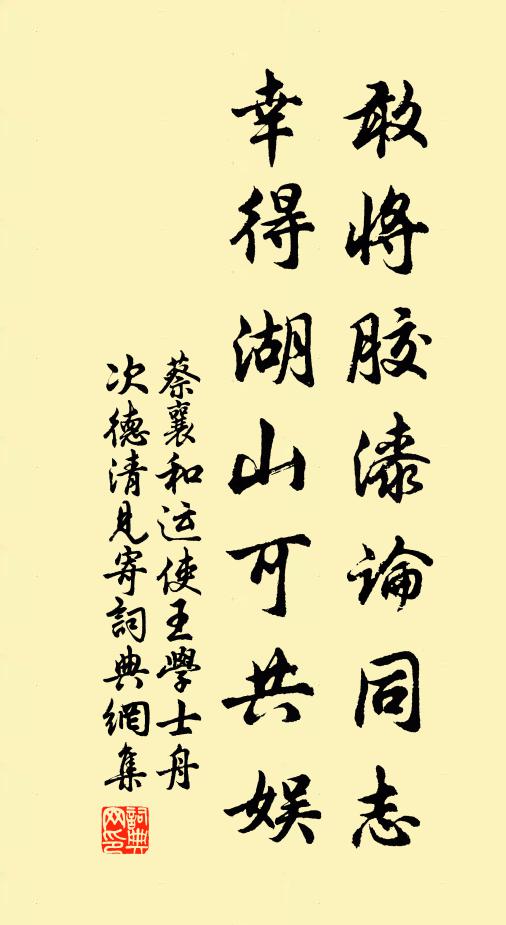 敢将胶漆論同志
幸得湖山可共娱
蔡襄和运使王學士舟
次德清見寄詞典網集
詞典
网印